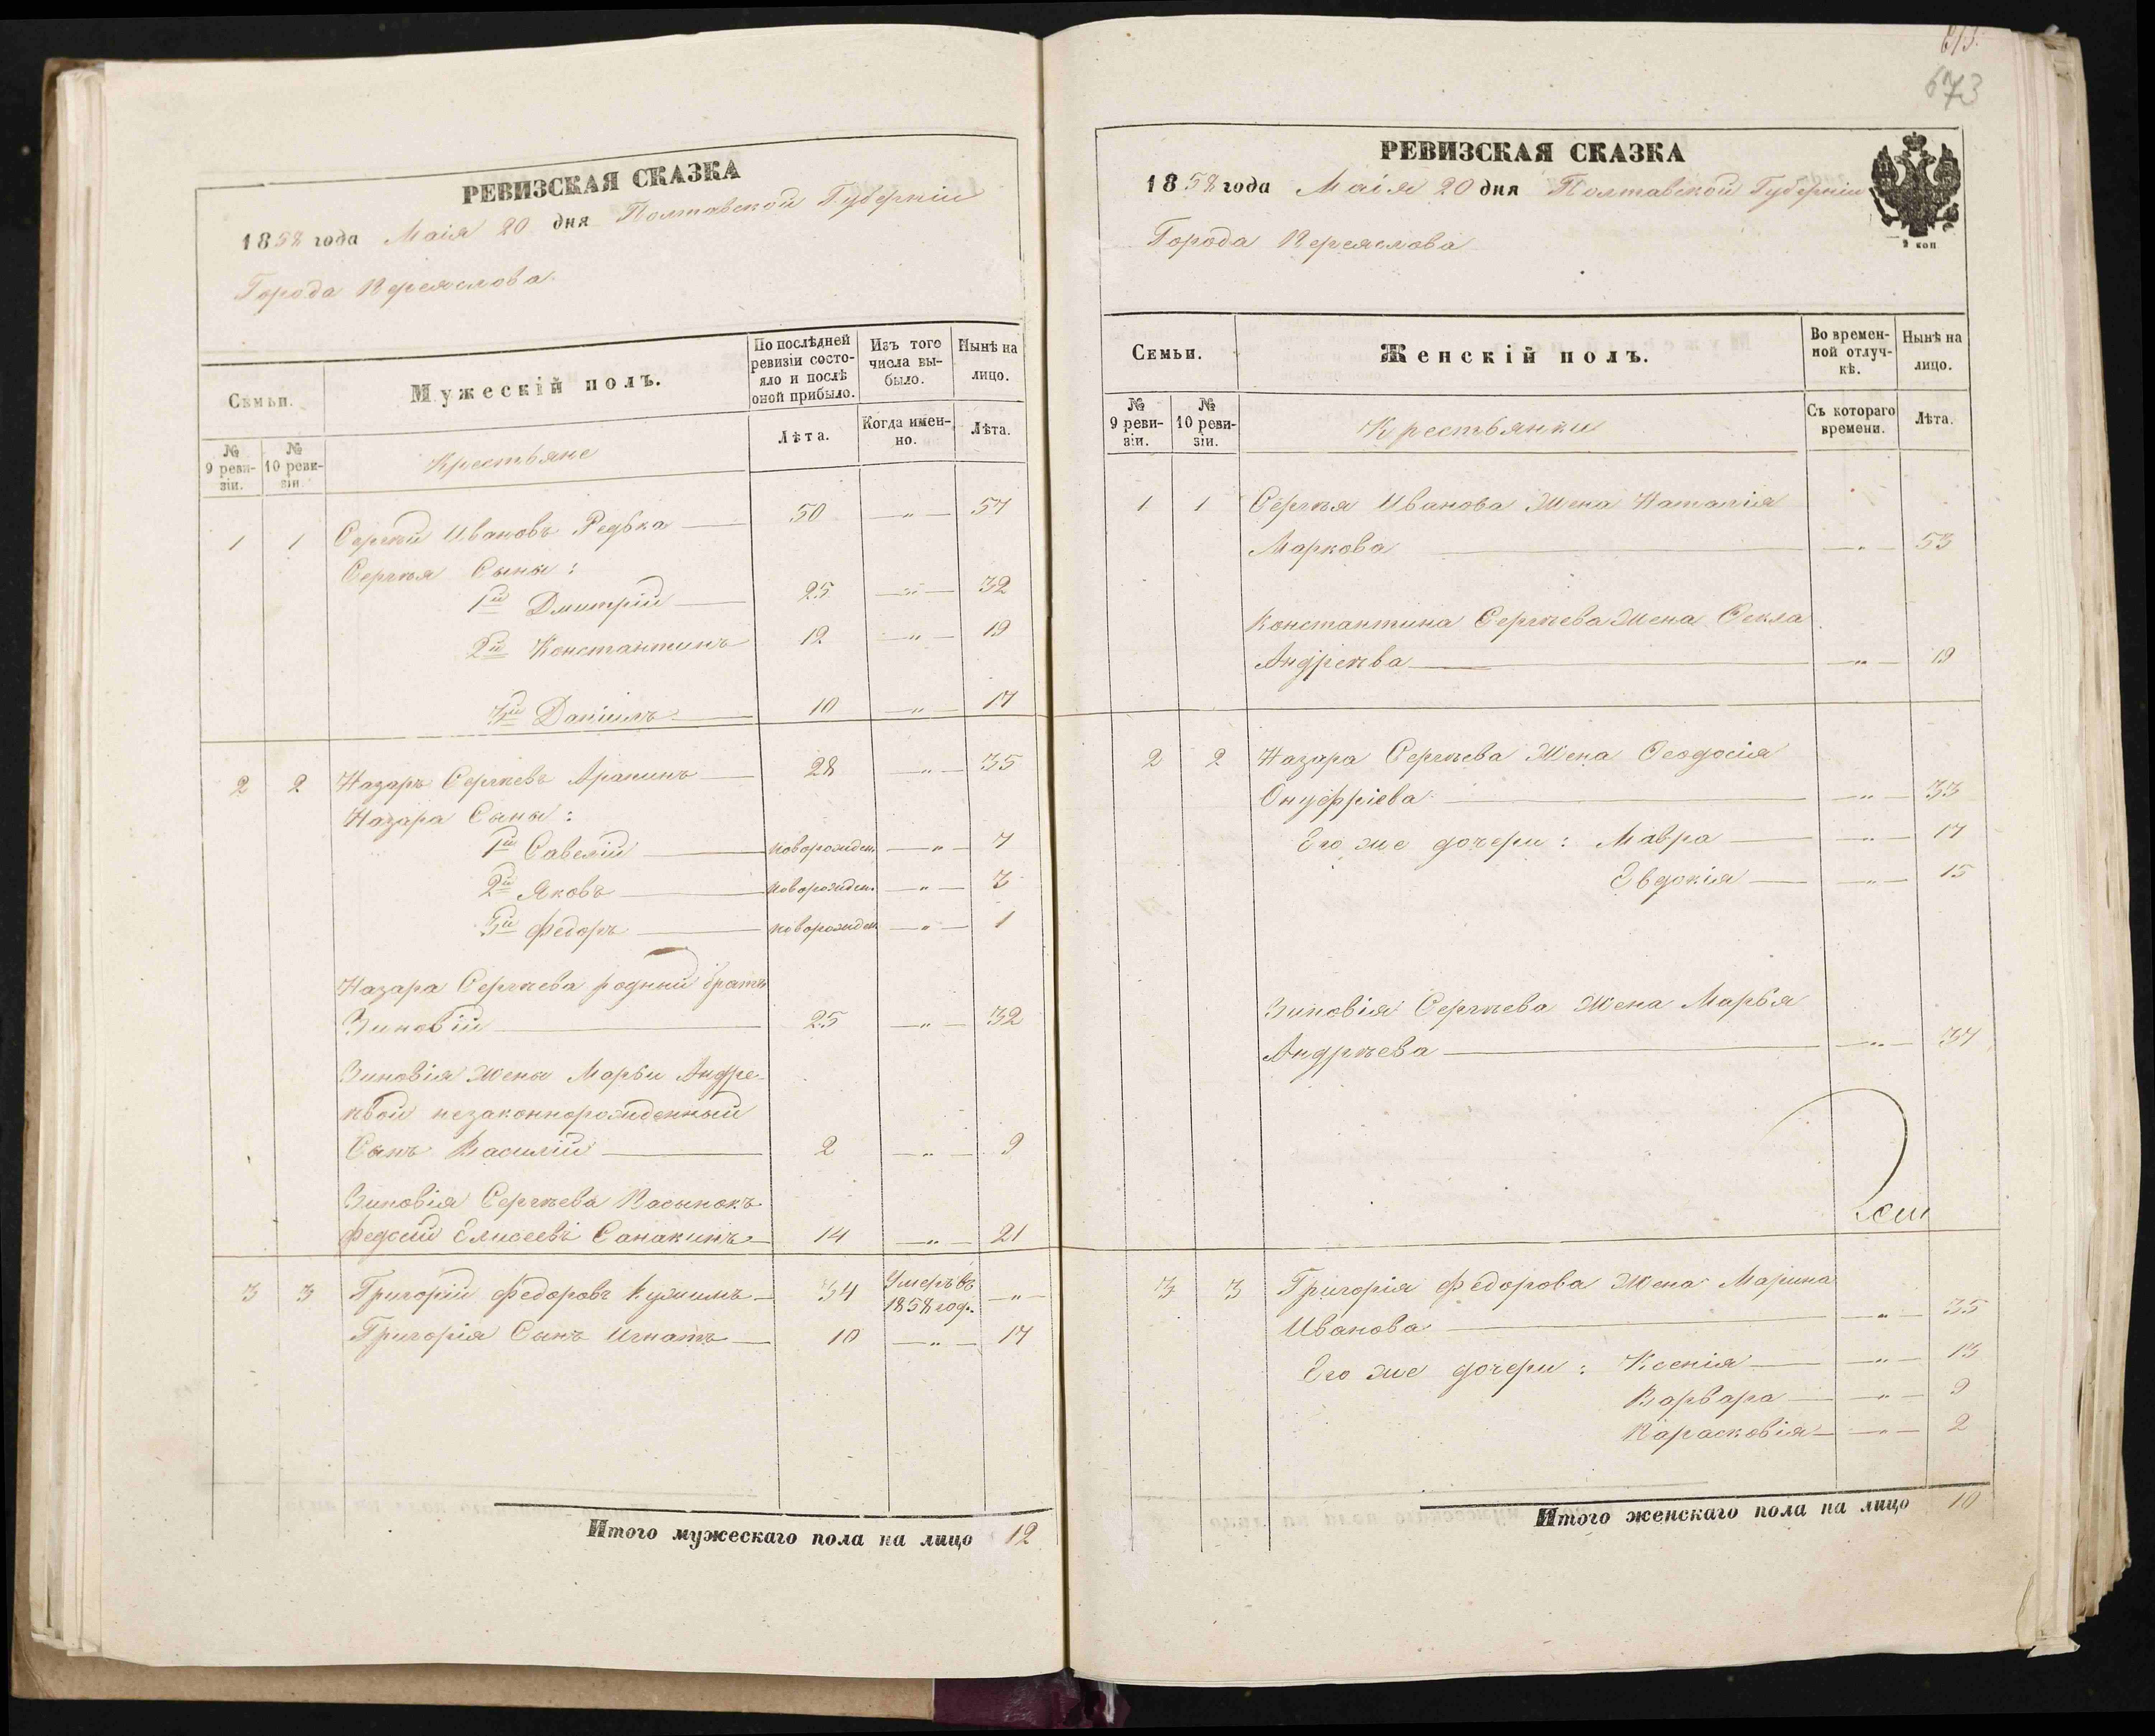 РЕВИЗСКАЯ СКАЗКА
1858 года Маія 20 дня Полтавской Губерніи
Города Переяслова.
Семьи.
Мужескій полъ.
По послѣдней ревизіи состояло и послѣ оной прибыло.
Изъ того числа выбыло.
Нынѣ на лицо.
№ 9 ревизіи.
№ 10 ревизіи.
Крестьяне
Лѣта.
Когда именно.
Лѣта.
1 1 Сергѣй Ивановъ Редька 50 — „ — 57
Сергѣя Сыны:
1й Дмитрій 25 — „ — 32
2й Константинъ 12 — „ — 19
3й Даніилъ 10 — „ — 17
2 2 Назаръ Сергѣевъ 28 — „ — 35
Назара Сыны:
1й Савелій новорожден. — „ — 7
2й Яковъ новорожден. — „ — 3
3й Федоръ новорожден — „ — 1
Назара Сергѣева родный братъ
Зиновій 25 — „ — 32
Зиновія жены Марьи Андре-
евой незаконнорожденный
Сынъ Василій 2 — „ — 9
Зиновія Сергѣева Пасынокъ
Федосій Елисеевъ Санакинъ 14 — „ — 21
3 3 Григорій Федоровъ 34 Умеръ въ 1858 год. — „ —
Григорія Сынъ Игнатъ 10 — „ — 17
Итого мужескаго пола на лицо 12
673
РЕВИЗСКАЯ СКАЗКА
1858 года Маія 20 дня Полтавской Губерніи
2 коп
Города Переяслова
Семьи.
Женскій полъ.
Во временной отлучкѣ.
Нынѣ на лицо.
№ 9 ревизіи.
№ 10 ревизіи.
Крестьянки
Съ котораго времени.
Лѣта.
1 1 Сергѣя Иванова Жена Наталія
Маркова — „ — 53
Константина Сергѣева Жена Ѳекла
Андреева — „ — 19
2 2 Назара Сергѣева Жена Ѳеодосія
Онуфріева — „ — 33
Его же дочери: Мавра — „ — 17
Евдокія — „ — 15
Зиновія Сергѣева Жена Марья
Андрѣева — „ — 37
3 3 Григорія Федорова Жена Марина
Иванова — „ — 35
Его же дочери: Ксенія — „ — 13
Варвара — „ — 9
Парасковія — „ — 2
Итого женскаго пола на лицо 10